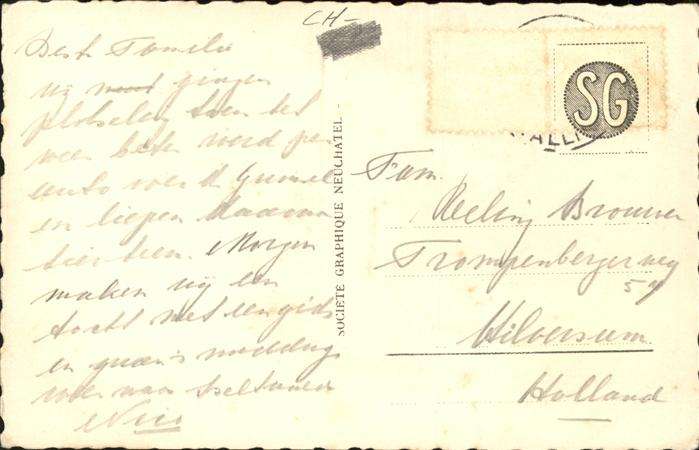 CH-
Beste Familie
wij gingen
plotseling toen het
weer beter werd per
auto over de
en liepen daarvan
hierheen. Morgen
maken wij een
tocht met een gids
en gaan 's middags
weer naar
Nico
SOCIÉTÉ GRAPHIQUE NEUCHATEL
SG
Fam.
Reeling Brouwer
Trompenbergerweg
Hilversum
Holland